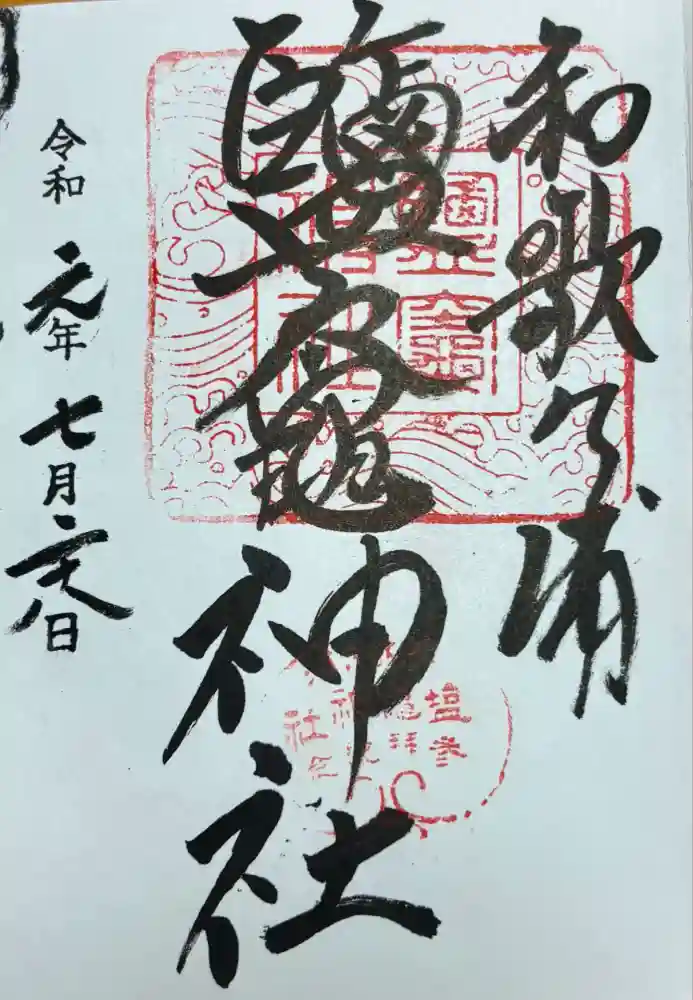 和歌の浦
鹽竈神社
令和元年七月二十八日